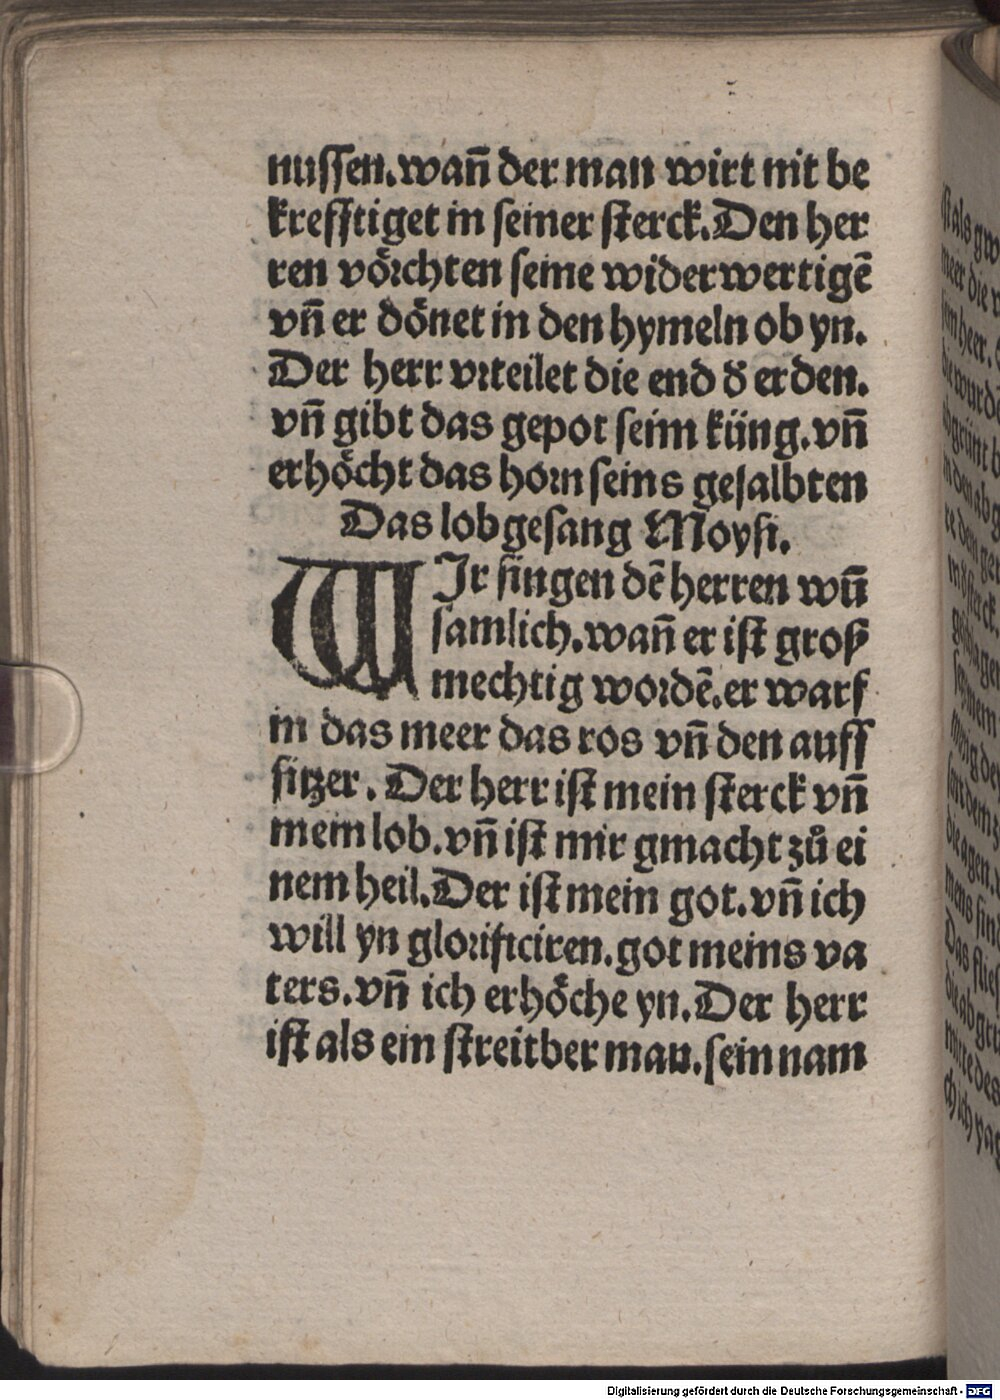 nussen.wañ der man wirt nit be
krefftiget in seiner sterck.Den her
ren vörchten seine widerwertigē
vñ er dönet in den hymeln ob yn.
Der herr vrteilet die end đ erden.
vñ gibt das gepot seim küng.vñ
erhöcht das horn seins gesalbten
Das lobgesang Moysi.
WIr singen dē herren wuñ
samlich.wañ er ist groß
mechtig wordē.er warf
in das meer das ros vñ den auff
sitzer. Der herr ist mein sterck vñ
mein lob.vñ ist mir gmacht zů ei
nem heil.Der ist mein got.vñ ich
will yn glorificiren.got meins va
ters.vñ ich erhöche yn.Der herr
ist als ein streitber man.sein nam
Digitalisierung gefördert durch die Deutsche Forschungsgemeinschaft - DFG